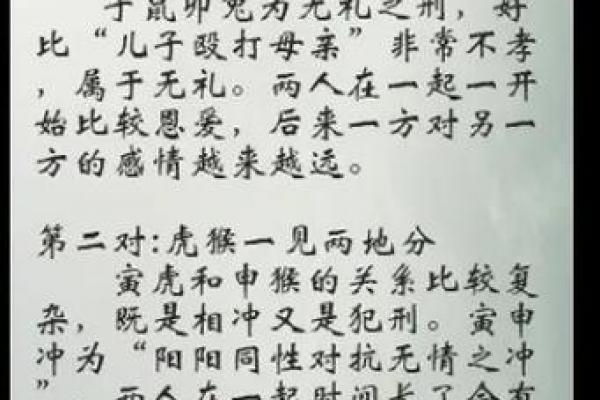 子鼠卯兔为无礼之刑，好
比“儿子殴打母亲”非常不孝
，属于无礼。两人在一起一开
始比较恩爱，后来一方对另一
方的感情越来越远。
第二对:虎猴一见两地分
寅虎和申猴的关系比较复
杂，既是相冲又是犯刑。寅申
冲为“阳阳同性对抗无情之冲
”，两人在一起时间长了会有